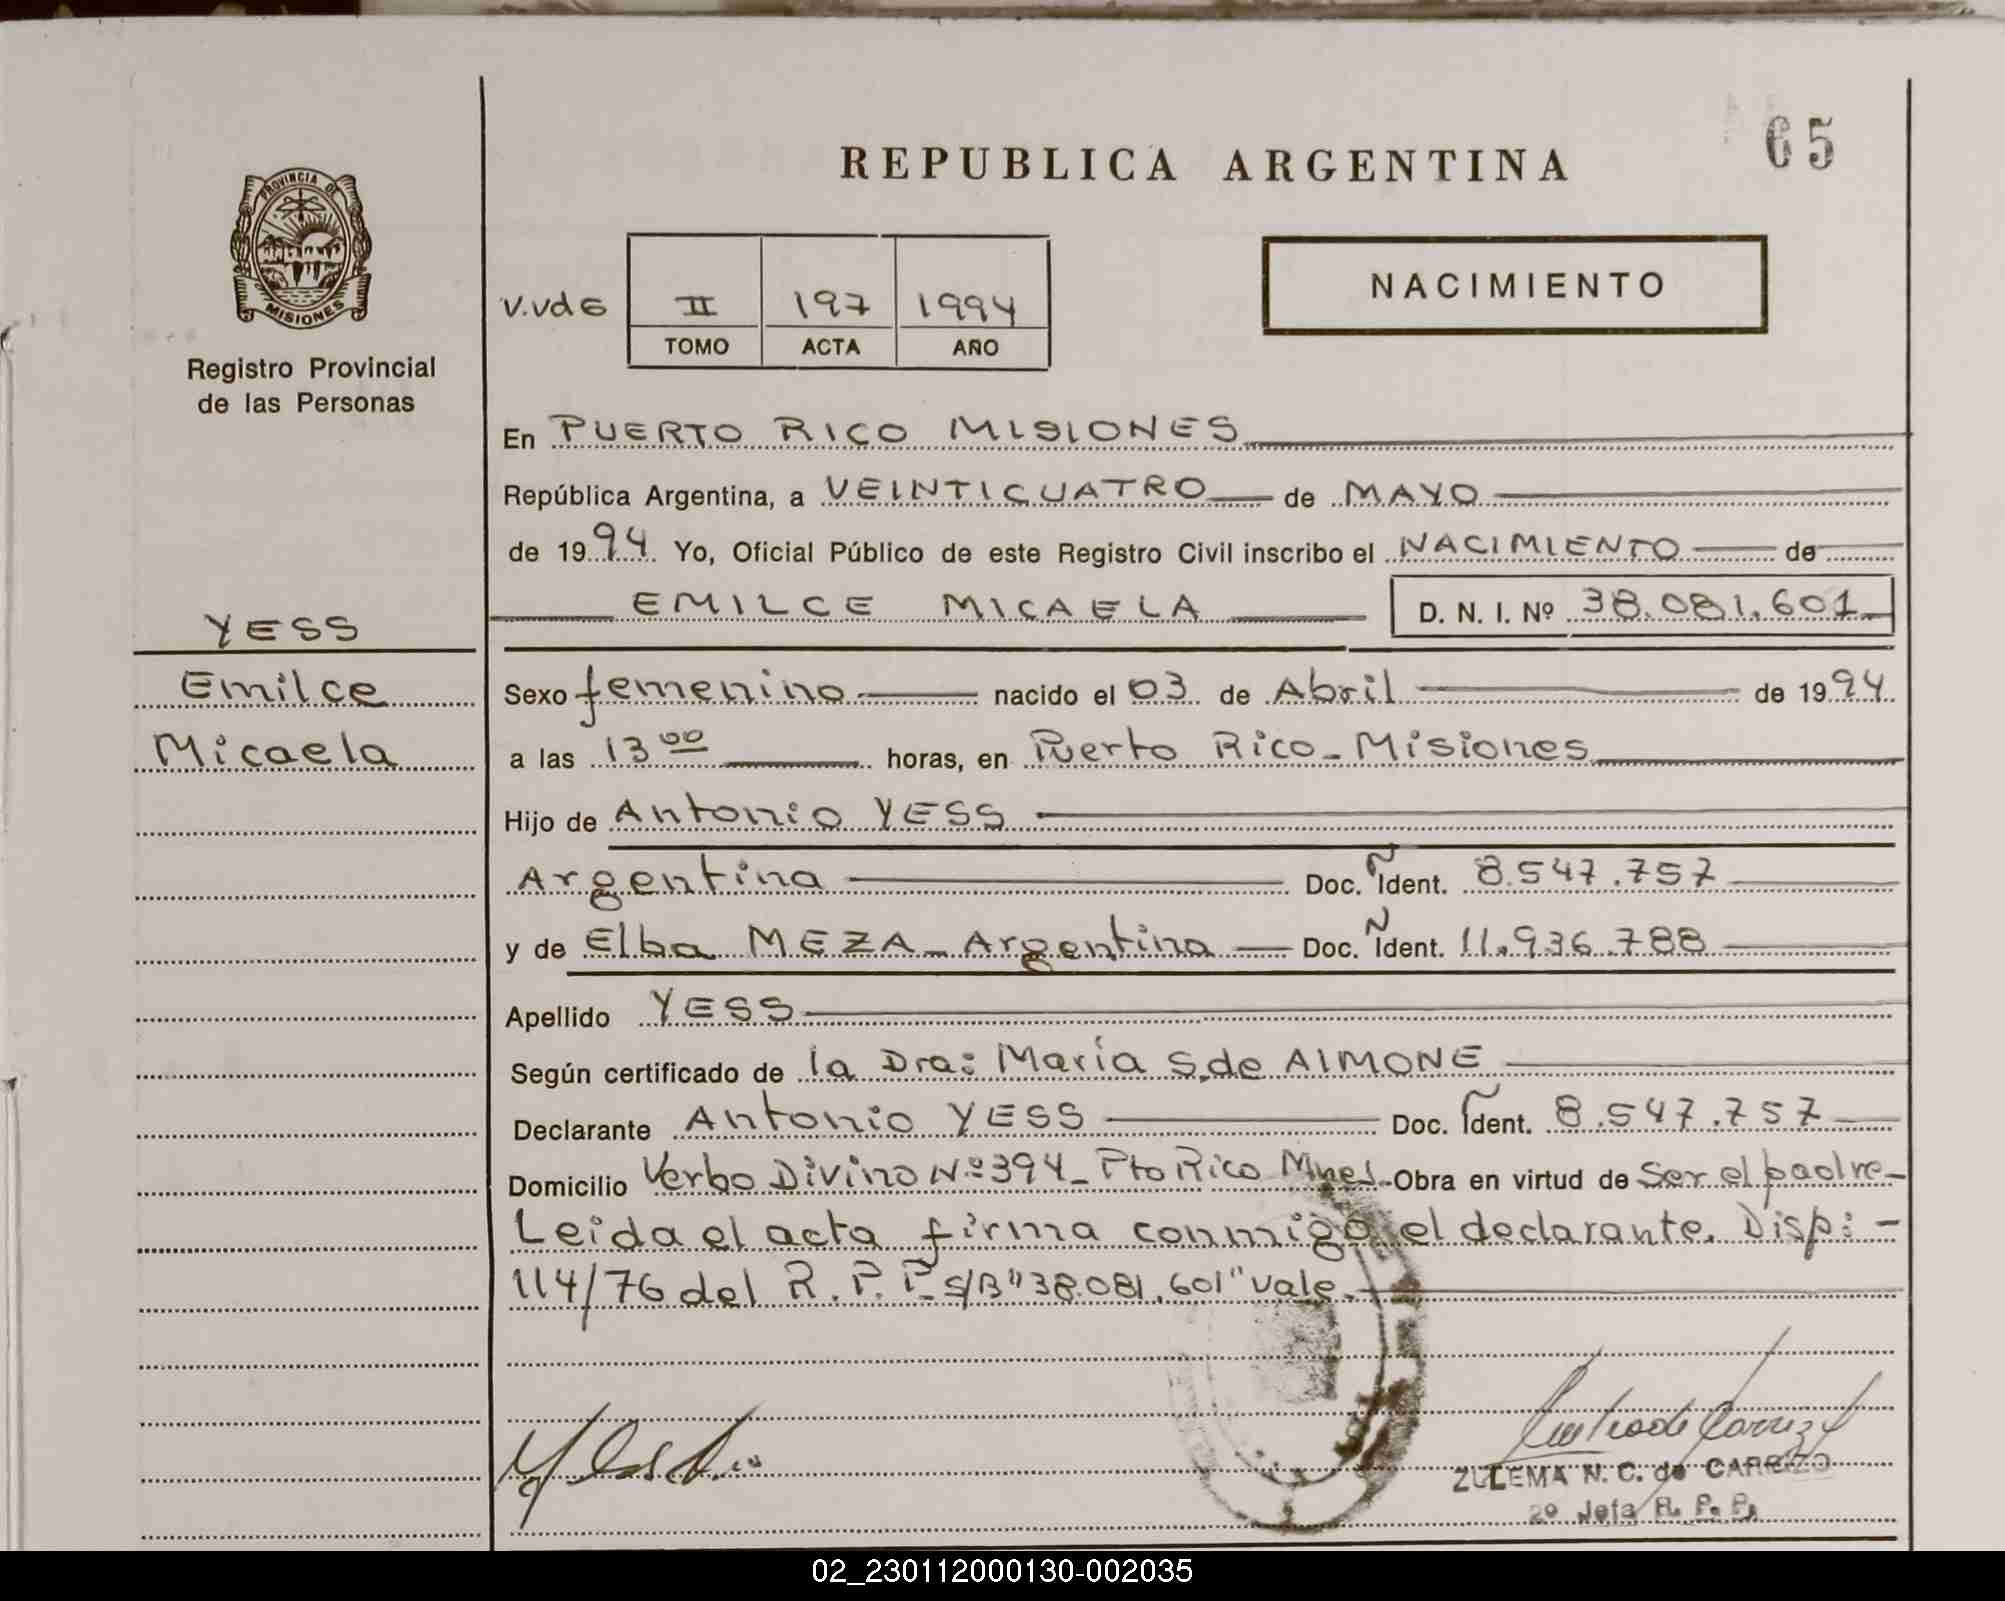 REPUBLICA ARGENTINA
65
PROVINCIA DE
MISIONES
Registro Provincial
de las Personas
NACIMIENTO
II 197 1994
TOMO ACTA AÑO
En PUERTO RICO MISIONES
República Argentina, a VEINTICUATRO de MAYO
de 1994 Yo, Oficial Público de este Registro Civil inscribo el NACIMIENTO de
EMILCE MICAELA D. N. I. Nº 38.081.601
YESS
Emilce
Micaela
Sexo femenino nacido el 03 de Abril de 1994
a las 13 00 horas, en Puerto Rico - Misiones
Hijo de Antonio YESS
Argentina Doc. Ident. 8.547.757
y de Elba MEZA - Argentina Doc. Ident. 11.936.788
Apellido YESS
Según certificado de la Dra: María S. de AIMONE
Declarante Antonio YESS Doc. Ident. 8.547.757
Domicilio Verbo Divino Nº 394 - Pto Rico Mnes - Obra en virtud de Ser el padre -
Leida el acta firma conmigo el declarante. Disp: -
114/76 del R. P. P. S/B "38.081.601" vale.
ZULEMA N. C. de CAROZO
2º Jefa R. P. P.
02_230112000130-002035